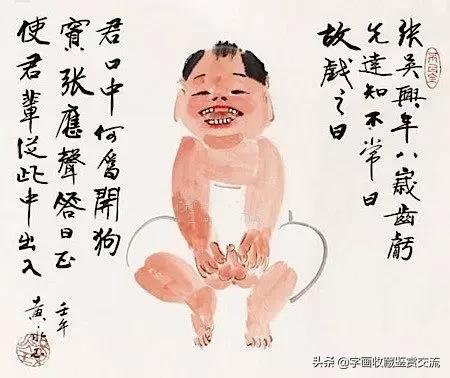 张吴興年八歲齿虧
先達知不常曰
故戲之曰
君口中何為開狗
竇张應聲答曰正
使君輩從此中出入
壬午
黄永玉
头条 @字画收藏鉴赏交流